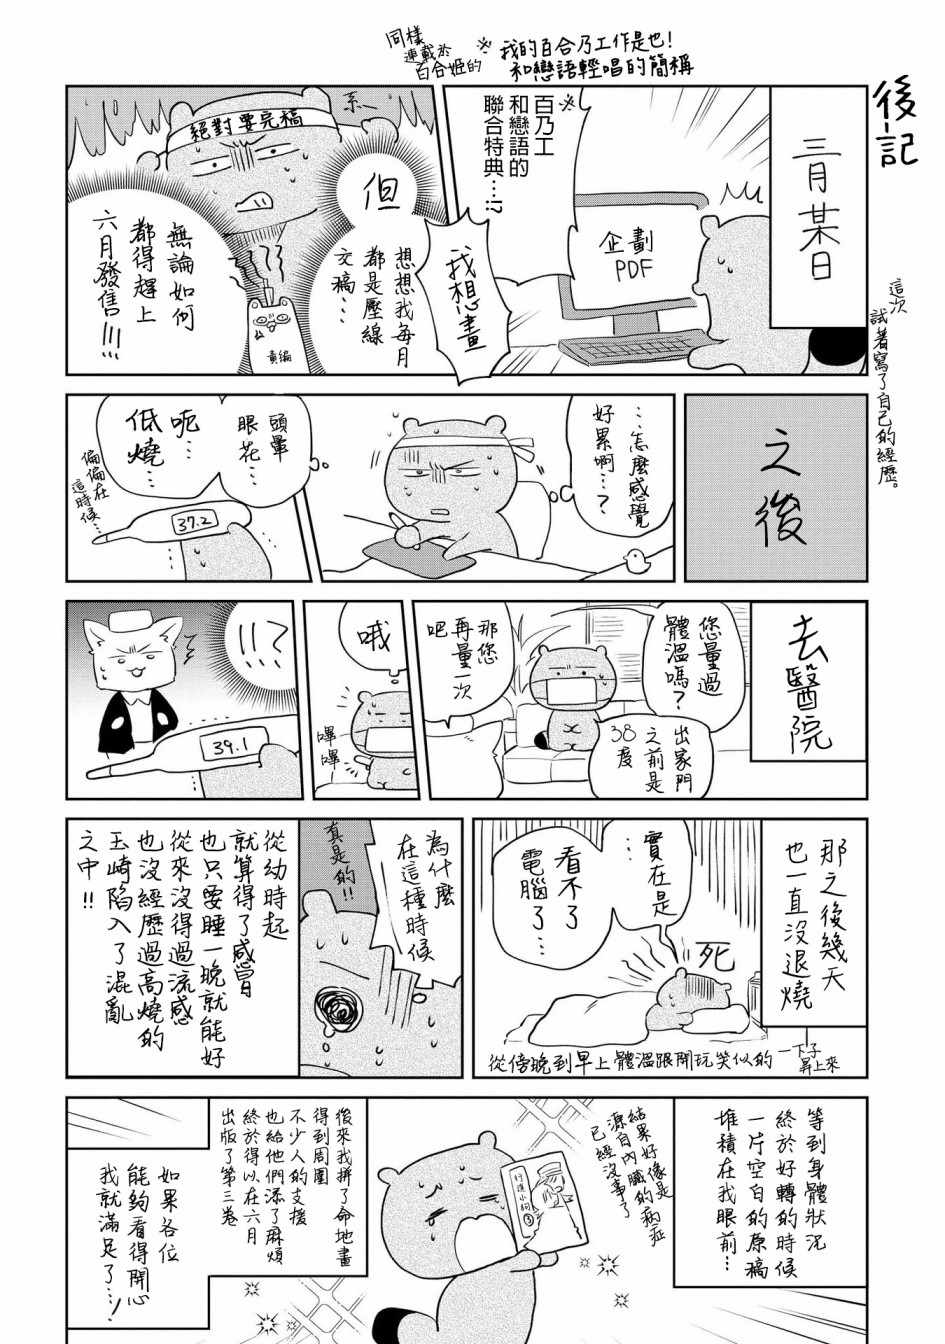 後記
這次
試著寫了自己的經歷。
同樣
連載於
百合姬的
※我的百合乃工作是也!
和戀語輕唱的簡稱
三月某日
企劃
PDF
※百乃工
和戀語的
聯合特典…!?
我想畫
但
想想我每月
都是壓線
交稿…
絕對要完稿
責編
無論如何
都得趕上
六月發售!!!
之後
…怎麼感覺
好累啊…?
頭暈
眼花…
呃…
低燒…
偏偏在
這時候…
37.2
去醫院
您量過
體溫嗎?
出家門
之前是
38度
那您
再量一次
吧
哦
嗶嗶
!!!?
39.1
那之後幾天
也一直沒退燒
實在是
…
看不了
電腦了…
死
從傍晚到早上體溫跟開玩笑似的一下子
昇上來
為什麼
在這種時候
真是的!!
從幼時起
就算得了感冒
也只要睡一晚就能好
從來沒得過流感
也沒經歷過高燒的
玉崎陷入了混亂
之中!!
等到身體狀況
終於好轉的時候
一片空白的原稿
堆積在我眼前…
結果好像是
源自內臟的病症
已經沒事了
後來我拼了命地畫
得到周圍
不少人的支援
也給他們添了麻煩
終於得以在六月
出版了第三卷
如果各位
能夠看得開心
我就滿足了…!